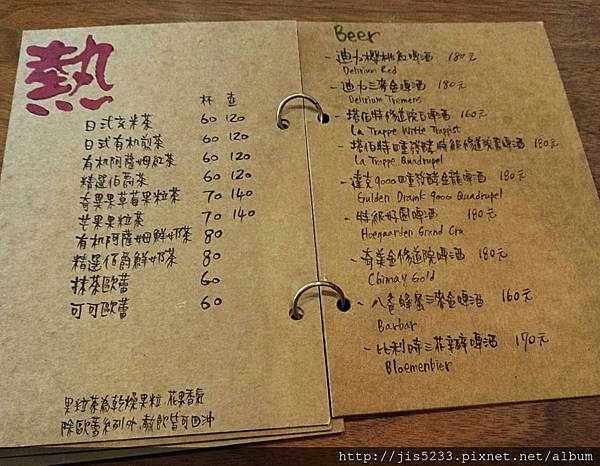 熱
杯 壺
日式玄米茶 60 120
日式有機煎茶 60 120
有機阿薩姆紅茶 60 120
精選伯爵茶 60 120
奇異果草莓果粒茶 70 140
芒果果粒茶 70 140
有機阿薩姆鮮奶茶 80
精選伯爵鮮奶茶 80
抹茶歐蕾 60
可可歐蕾 60
果粒茶為乾燥果粒, 花果香氣
除歐蕾系列外, 熱飲皆可回沖
Beer
- 迪力櫻桃紅啤酒 180元
Delirium Red
- 迪力三麥金啤酒 180元
Delirium Tremens
- 塔伯特修道院白啤酒 160元
La Trappe Witte Trappist
- 塔伯特四重發酵特級修道院啤酒 180元
La Trappe Quadrupel
- 達克9000四重發酵金龍啤酒 180元
Gulden Draak 9000 Quadrupel
- 特級好園啤酒 180元
Hoegaarden Grand Cru
- 奇美金修道院啤酒 180元
Chimay Gold
- 八爸蜂蜜三麥金啤酒 160元
Barbar
- 比利時三花瓣啤酒 170元
Bloemenbier
http://jis5233.pixnet.net/album